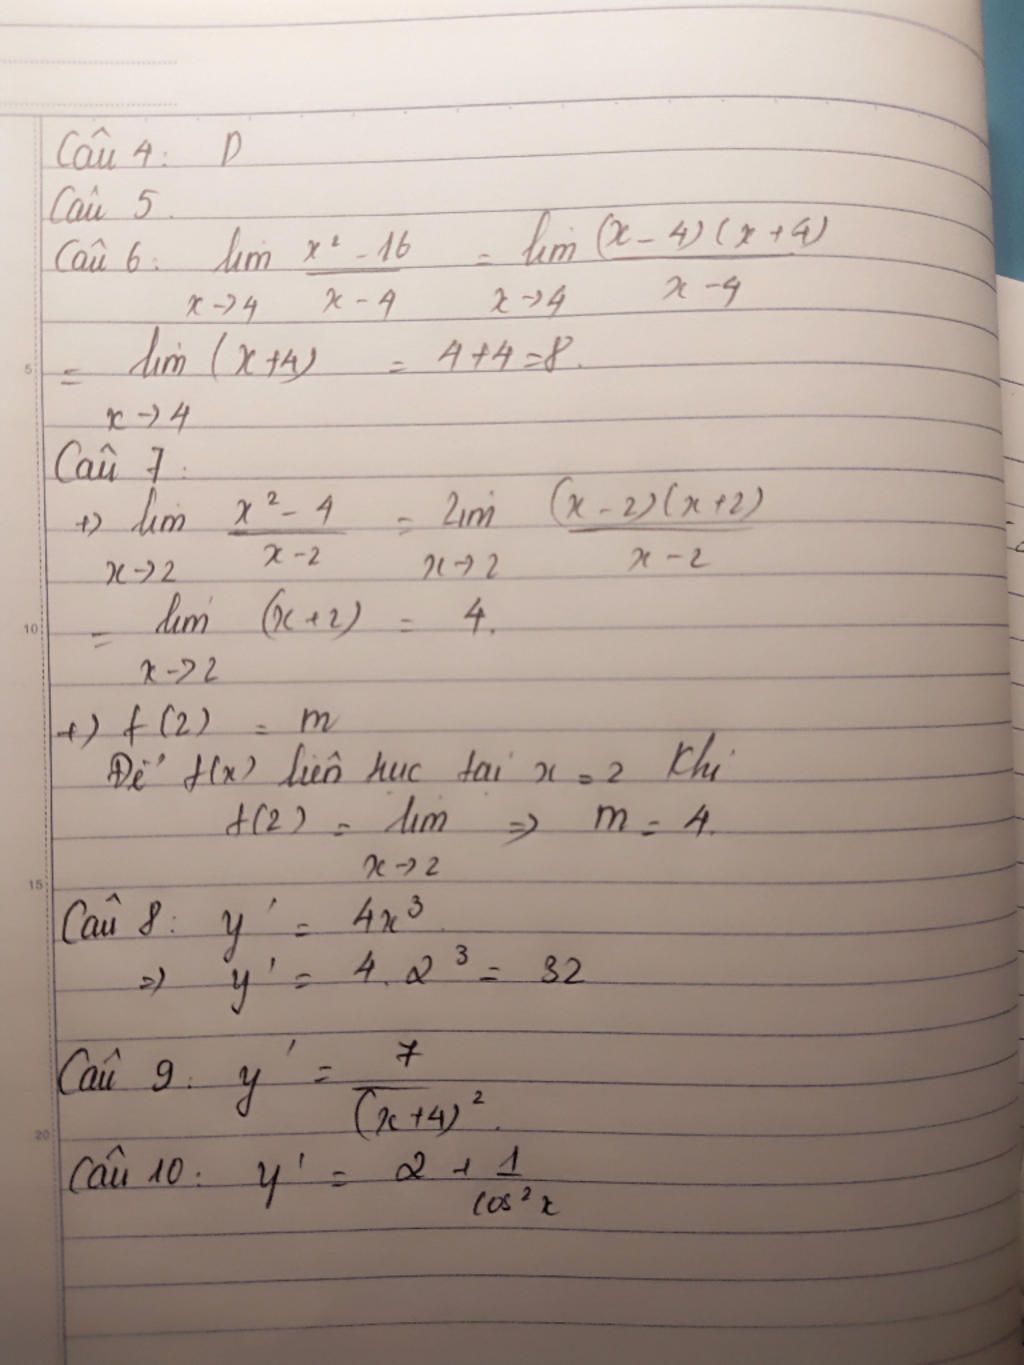 Câu 4: D
Câu 5.
Câu 6: lim x→4 (x² - 16)/(x - 4) = lim x→4 (x - 4)(x + 4)/(x - 4)
= lim x→4 (x + 4) = 4 + 4 = 8.
Câu 7:
+) lim x→2 (x² - 4)/(x - 2) = lim x→2 (x - 2)(x + 2)/(x - 2)
= lim x→2 (x + 2) = 4.
+) f(2) = m
Để f(x) liên tục tại x = 2 Khi
f(2) = lim x→2 => m = 4.
Câu 8: y' = 4x³.
=> y' = 4. 2³ = 32
Câu 9: y' = 7/(x + 4)².
Câu 10: y' = 2 + 1/cos²x
5
10
15
20